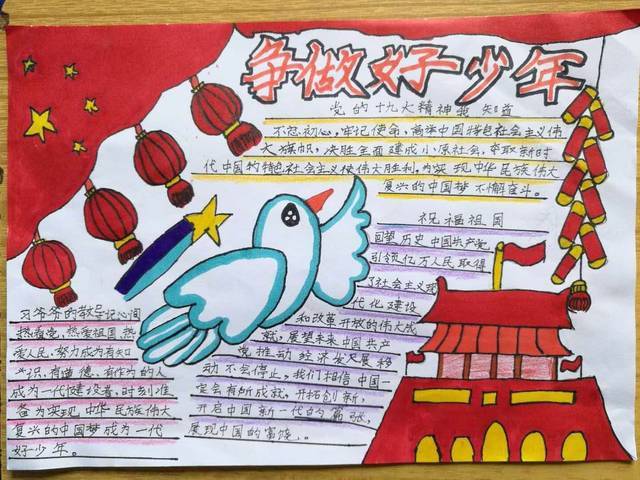 争做好少年
党的十九大精神我知道
不忘初心,牢记使命,高举中国特色社会主义伟
大旗帜,决胜全面建成小康社会,夺取新时
代中国的特色社会主义使伟大胜利,为实现中华民族伟大
复兴的中国梦不懈奋斗。
祝福祖国
回望历史中国共产党
引领亿万人民取得
了社会主义现
代化建设
和改革开放的伟大成
就,展望未来中国共产
党推动经济发展移
动不会停止,我们相信中国一
定会有所成就,开拓创新,
开启中国新一代的富强,
展现中国的富饶。
习爷爷的教导记心间
热爱党,热爱祖国,热
爱人民,努力成为有知
识,有道德,有作为的人
成为一代建设者,时刻准
备为实现中华民族伟大
复兴的中国梦成为一代
好少年。